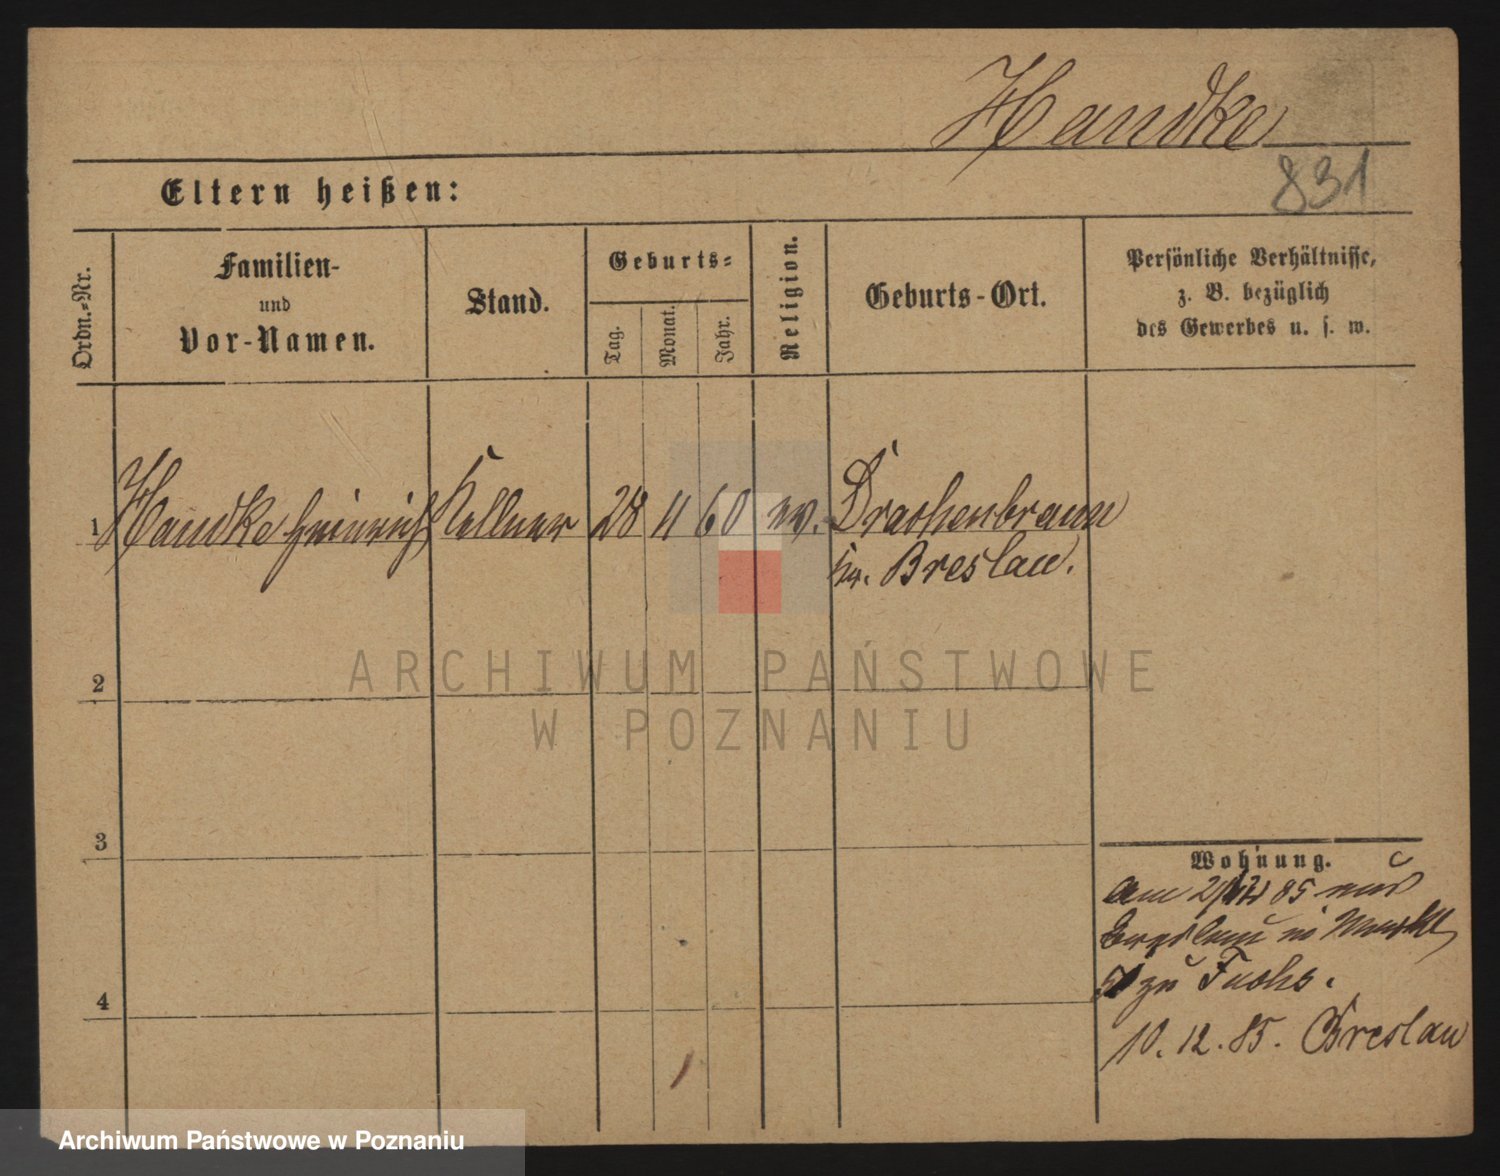 Handke
831
Eltern heißen:
Ordn.-Nr.
Familien-
und
Vor-Namen.
Stand.
Geburts-
Tag.
Monat.
Jahr.
Religion.
Geburts-Ort.
Persönliche Verhältnisse,
z. B. bezüglich
des Gewerbes u. s. w.
1 Handke Heinrich Kellner 28 11 60 ev. Drachenbrunn
Kr. Breslau.
ARCHIWUM PAŃSTWOWE
W POZNANIU
2
3
4
Wohnung.
Am 85 aus
Breslau in
zu Fuchs.
10. 12. 85. Breslau
Archiwum Państwowe w Poznaniu